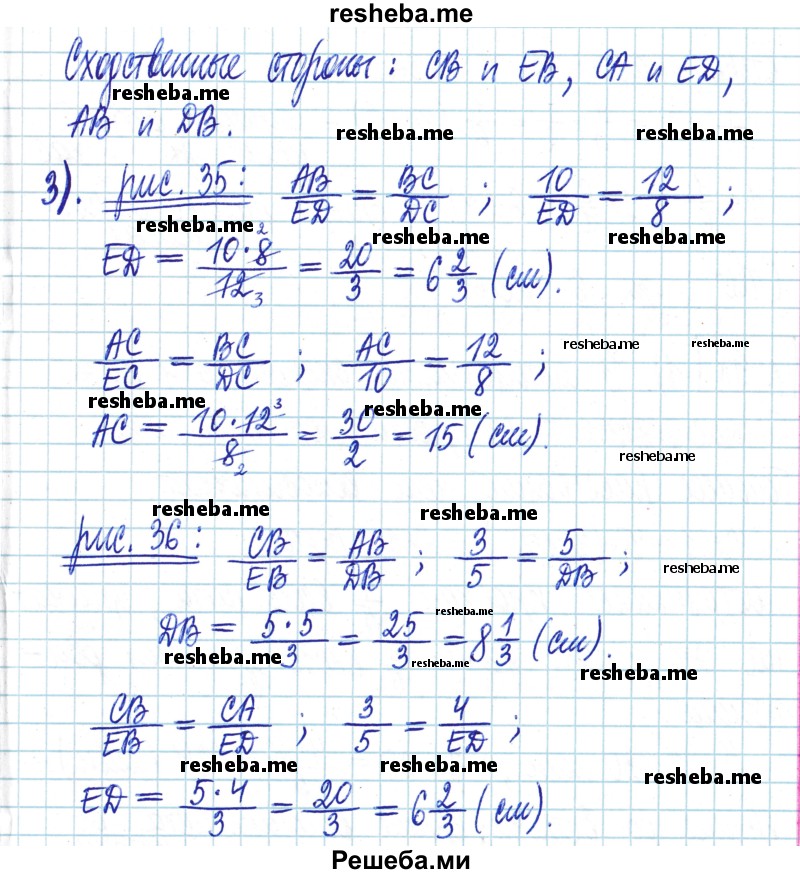 resheba.me
Сходственные стороны: СВ и ЕВ, СА и ЕD,
resheba.me
АВ и DВ.
resheba.me resheba.me
3). рис. 35: AB/ED = BC/DC ; 10/ED = 12/8 ;
resheba.me resheba.me resheba.me
ED = 10·8 2/12 3 = 20/3 = 6 2/3 (см).
AC/EC = BC/DC ; AC/10 = 12/8 ;
resheba.me resheba.me
resheba.me resheba.me
AC = 10·12 3/8 2 = 30/2 = 15 (см).
resheba.me
resheba.me resheba.me
рис. 36: CB/EB = AB/DB ; 3/5 = 5/DB ;
resheba.me
resheba.me
DB = 5·5/3 = 25/3 = 8 1/3 (см).
resheba.me resheba.me resheba.me
CB/EB = CA/ED ; 3/5 = 4/ED ;
resheba.me resheba.me resheba.me
ED = 5·4/3 = 20/3 = 6 2/3 (см).
Решеба.ми